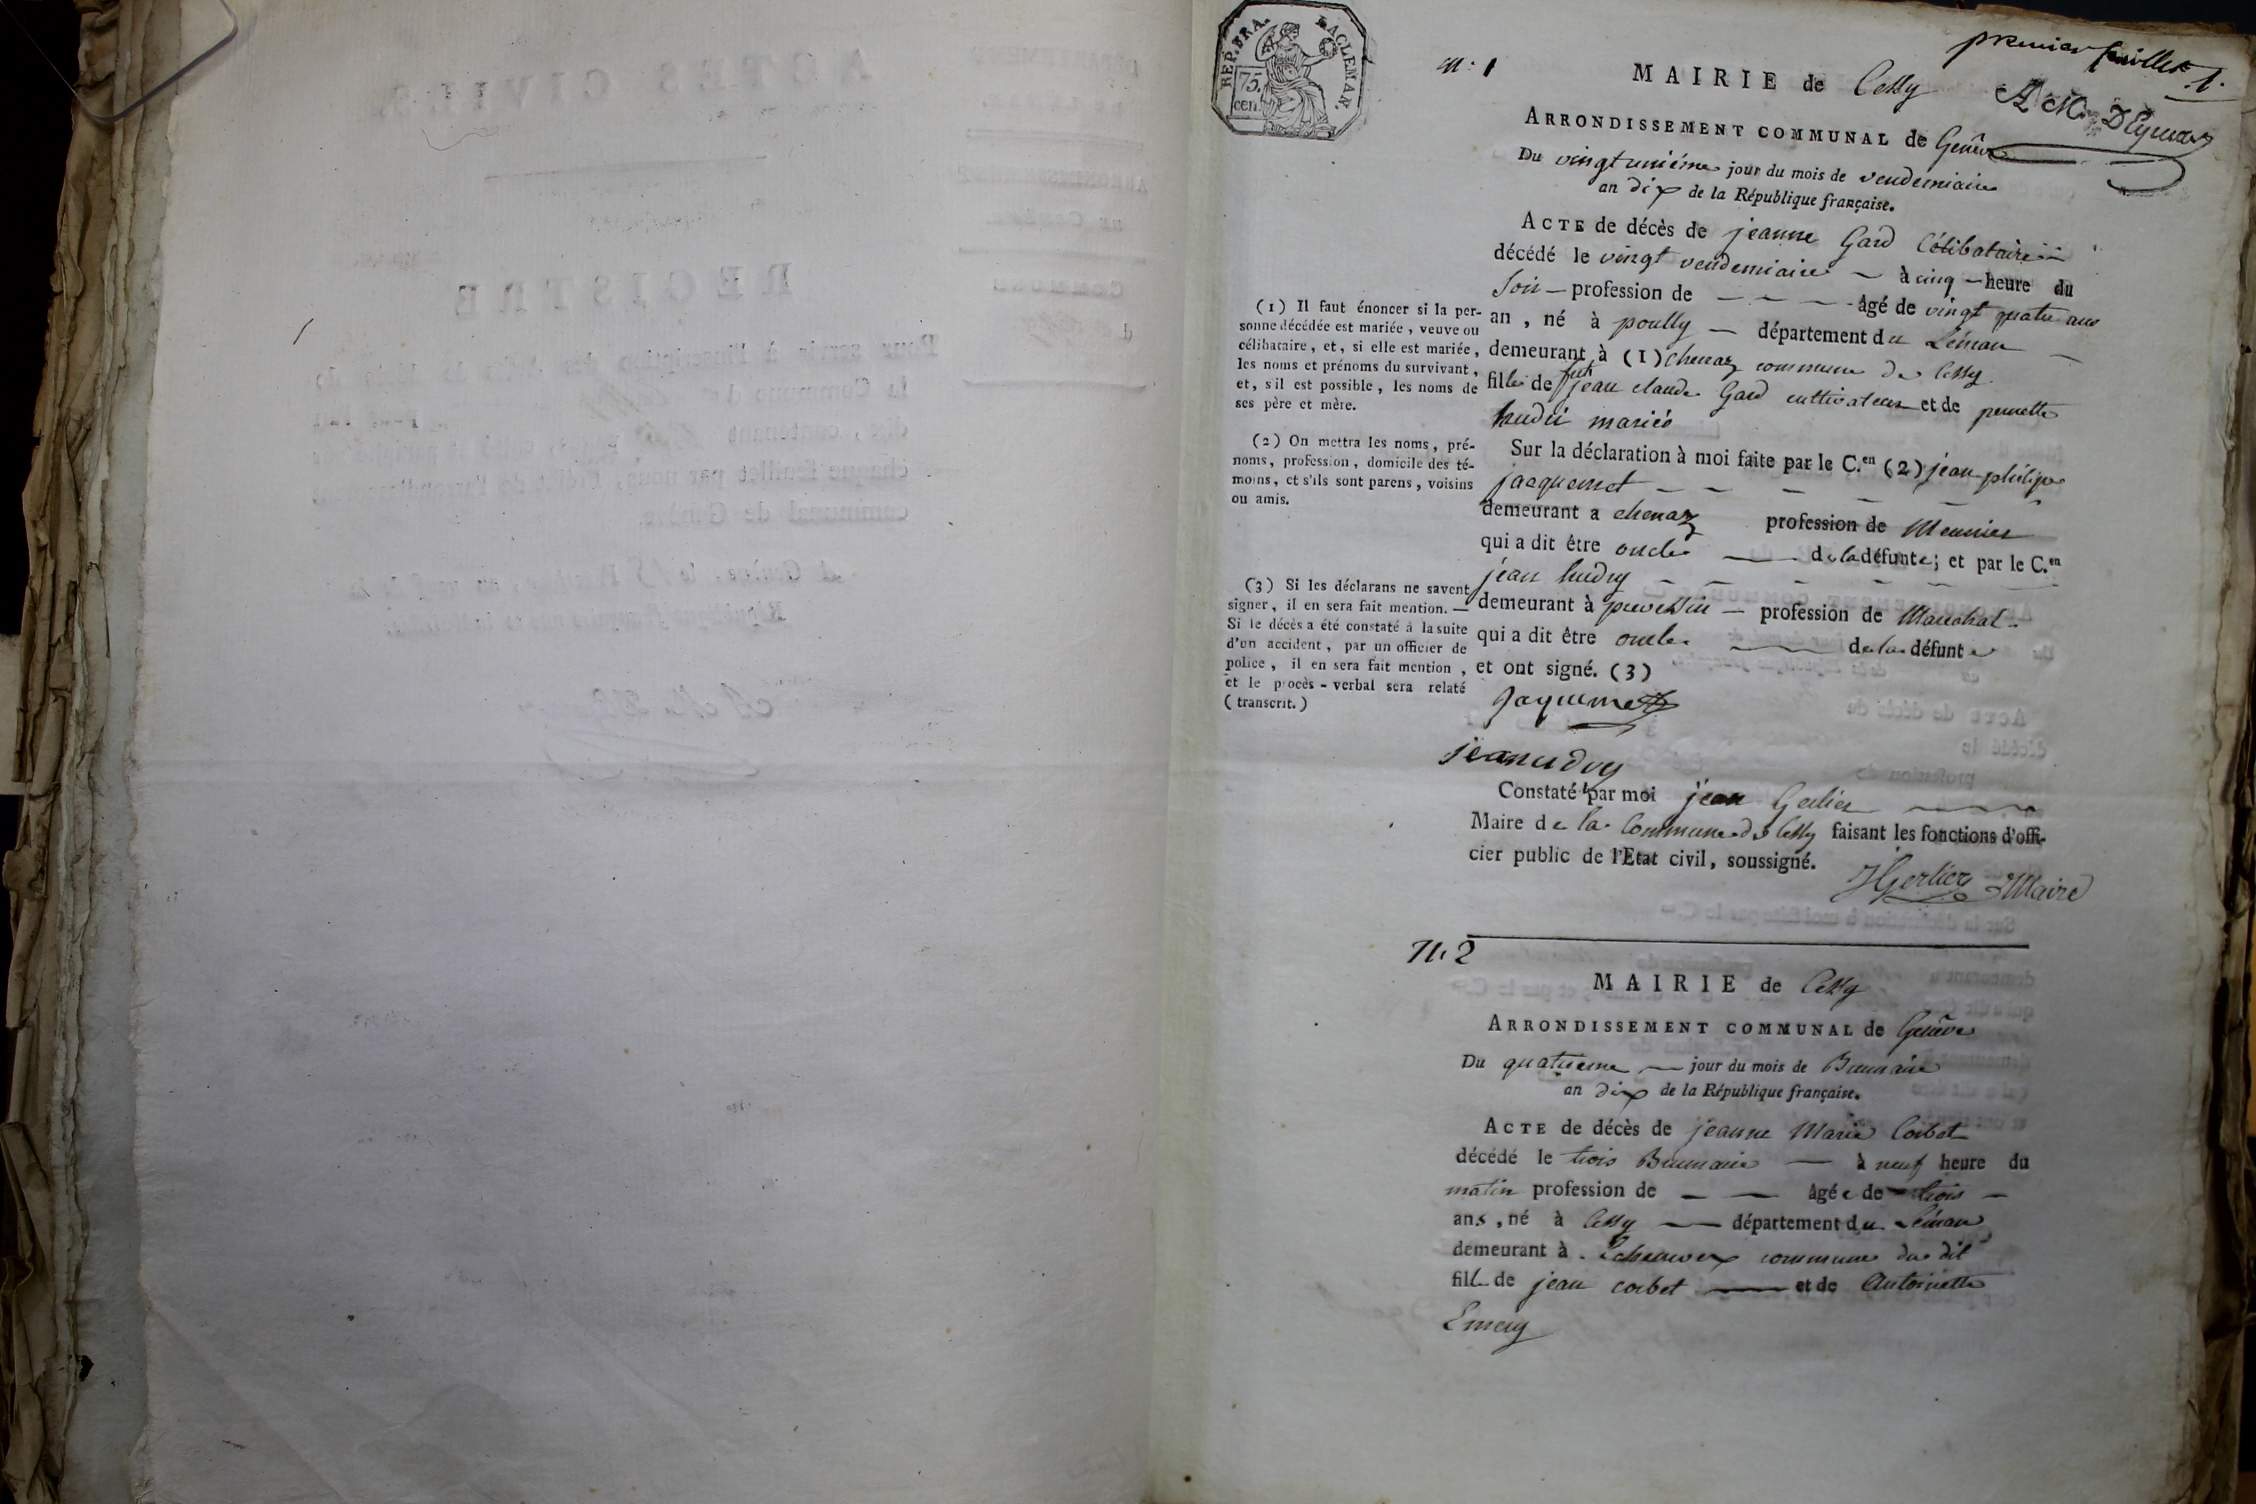 REP. FRA.
LAGLEMAN.
75.
cen.
premier feuillet 1.
n: 1
MAIRIE de Cessy
A M DEymar
ARRONDISSEMENT COMMUNAL de Genêve
Du vingtunième jour du mois de vendemiaire
an dix de la République française.
ACTE de décès de jeanne Gard Célibataire
décédé le vingt vendemiaire à cinq heure du
Soir profession de âgé de vingt quatre ans
an, né à poully département du Léman
demeurant à (1) chenaz commune de Cessy
fille de feu jean claude Gard cultivateur et de pernette
hudri mariés
Sur la déclaration à moi faite par le C.en (2) jean philipe
jacquemet
demeurant a chenaz profession de Meunier
qui a dit être oncle de la défunte; et par le C.en
jean hudry
demeurant à prevessin profession de Marechal
qui a dit être oncle de la défunte
et ont signé. (3)
Jaquemet
jean udry
Constaté par moi jean Gerlier
Maire de la Commune de Cessy faisant les fonctions d'offi-
cier public de l'Etat civil, soussigné.
JGerlier Maire
(1) Il faut énoncer si la per-
sonne décédée est mariée, veuve ou
célibataire, et, si elle est mariée,
les noms et prénoms du survivant,
et, s'il est possible, les noms de
ses père et mère.
(2) On mettra les noms, pré-
noms, profession, domicile des té-
moins, et s'ils sont parens, voisins
ou amis.
(3) Si les déclarans ne savent
signer, il en sera fait mention. —
Si le décès a été constaté à la suite
d'un accident, par un officier de
police, il en sera fait mention,
et le procès-verbal sera relaté
(transcrit.)
N. 2
MAIRIE de Cessy
ARRONDISSEMENT COMMUNAL de Genêve
Du quatrieme jour du mois de Brumaire
an dix de la République française.
ACTE de décès de jeanne Marie Corbet
décédé le trois Brumaire à neuf heure du
matin profession de âgée de trois
ans, né à Cessy département du Léman
demeurant à Echenevex commune du dit
fille de jean corbet et de Antoinette
Emery